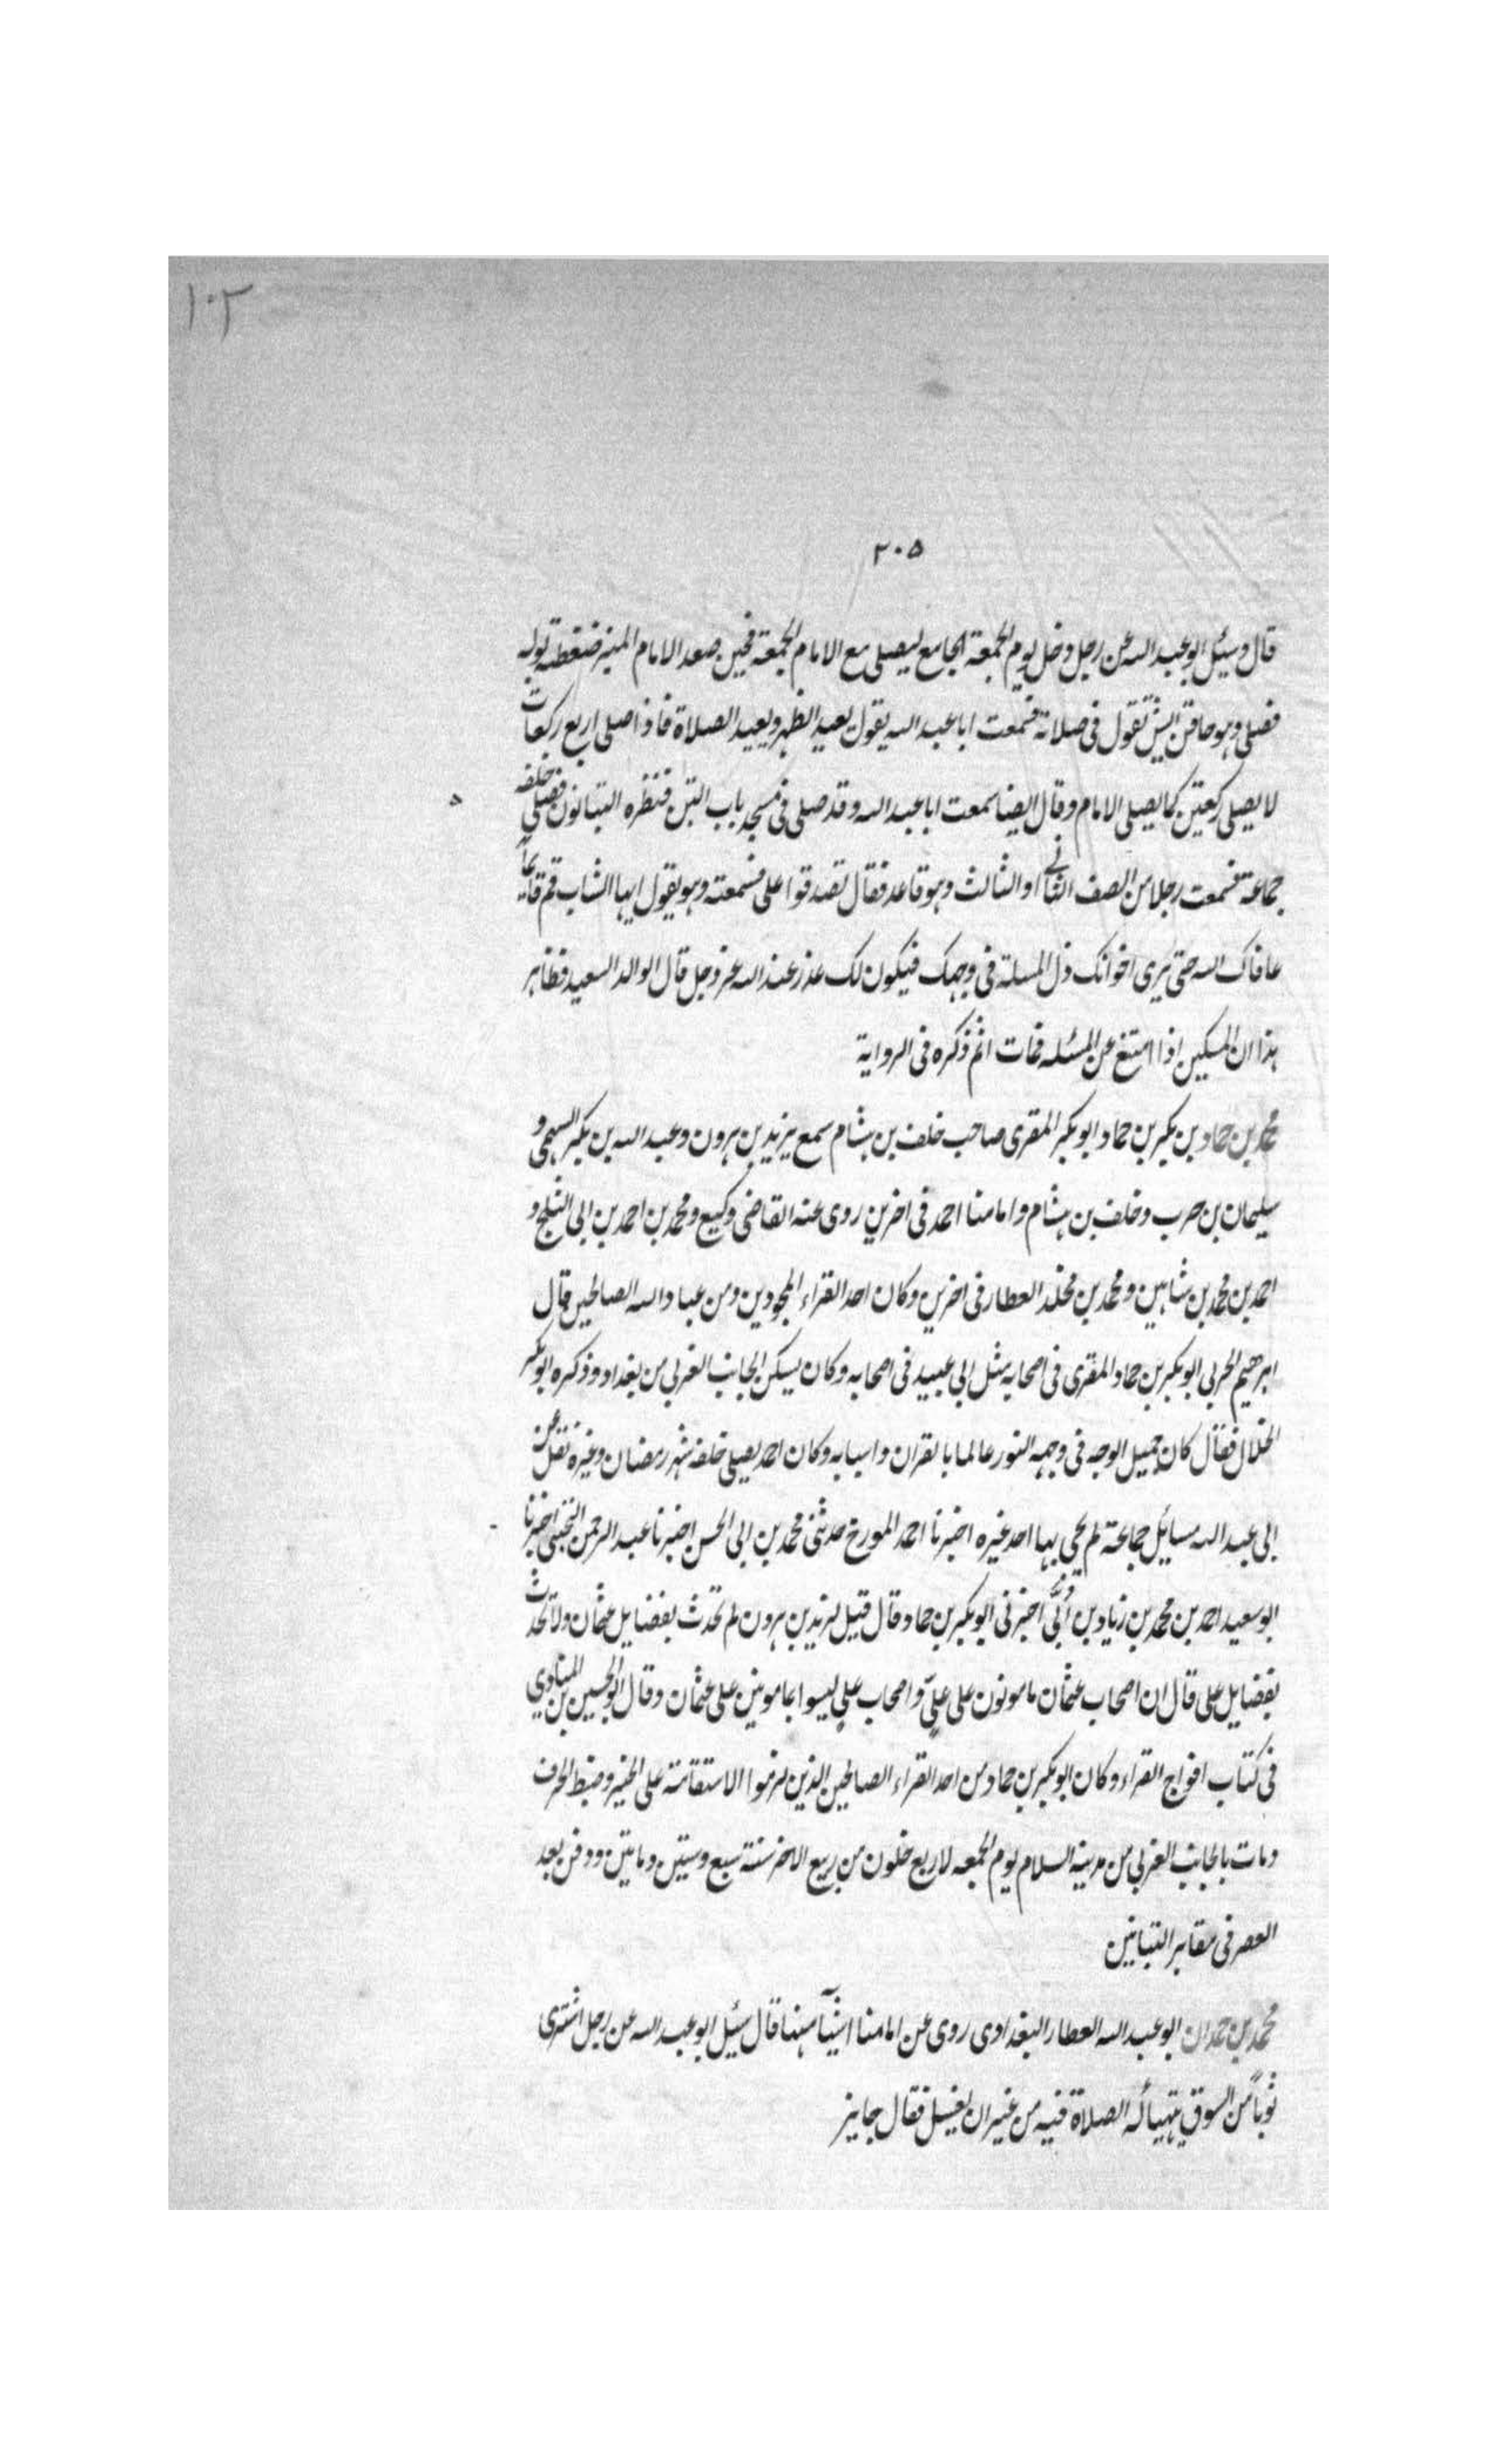 ١٠٢
٢٠٥
قال وسئل ابو عبد الله عن رجل دخل يوم الجمعة الجامع ليصلى مع الامام الجمعة فحين صعد الامام المنبر ضغطه بوله
فصلى وهو حاقن ايش تقول فى صلاته فسمعت ابا عبد الله يقول يعيد الظهر ويعيد الصلاة فاذا صلى اربع ركعات
لا يصلى ركعتين كما يصلى الامام وقال ايضا سمعت ابا عبد الله وقد صلى فى مسجد باب التبن فنظره التبانون فصلى خلفه
جماعة فسمعت رجلا من الصف الثانى او الثالث وهو قاعد فقال تصدقوا على فسمعته وهو يقول ايها الشاب قم قائما
عافاك الله حتى يرى اخوانك ذل المسلة فى وجهك فيكون لك عذر عند الله عز وجل قال الوالد السعيد فظاهر
هذا ان المسكين اذا امتنع عن المسئله فمات اثم ذكره فى الرواية
محمد بن حماد بن بكير بن حماد ابو بكر المقرى صاحب خلف بن هشام سمع يزيد بن هرون وعبد الله بن بكر السهمى و
سليمان بن حرب وخلف بن هشام وامامنا احمد فى اخرين روى عنه القاضى وكيع ومحمد بن احمد بن ابى الثلج و
احمد بن محمد بن شاهين ومحمد بن مخلد العطار فى اخرين وكان احد القراء المجودين ومن عباد الله الصالحين قال
ابرهيم الحربى ابو بكر بن حماد المقرى فى اصحابه مثل ابى عبيد فى اصحابه وكان يسكن الجانب الغربى من بغداد وذكره ابو بكر
الخلال فقال كان جميل الوجه فى وجهه النور عالما بالقران واسبابه وكان احمد يصلى خلفه شهر رمضان وغيره نقل عن
ابى عبد الله مسائل جماعة لم يحى بها احد غيره اخبرنا احمد المورخ حدثنى محمد بن ابى الحسن اخبرنا عبد الرحمن التجيبى اخبرنا
ابو سعيد احمد بن محمد بن زياد بن اخبرنى ابو بكر بن حماد وقال قيل ليزيد بن هرون لم تحدث بفضايل عثمان ولا تحدث
بفضايل على قال ان اصحاب عثمان مامونون على علىّ واصحاب على ليسوا بمامونين على عثمان وقال ابو الحسين بن المنادى
فى كتاب افواج القراء وكان ابو بكر بن حماد من احد القراء الصالحين الذين لزموا الاستقامة على الخير وضبط الحرف
ومات بالجانب الغربى من مدينة السلام يوم الجمعه لاربع خلون من ربيع الاخر سنة سبع وستين ومايتين ودفن بعد
العصر فى مقابر التبانين
محمد بن حمدان ابو عبد الله العطار البغدادى روى عن امامنا اشيآ منها قال سئل ابو عبد الله عن رجل اشترى
ثوبا من السوق يتهيأ له الصلاة فيه من غير ان يغسل فقال جايز